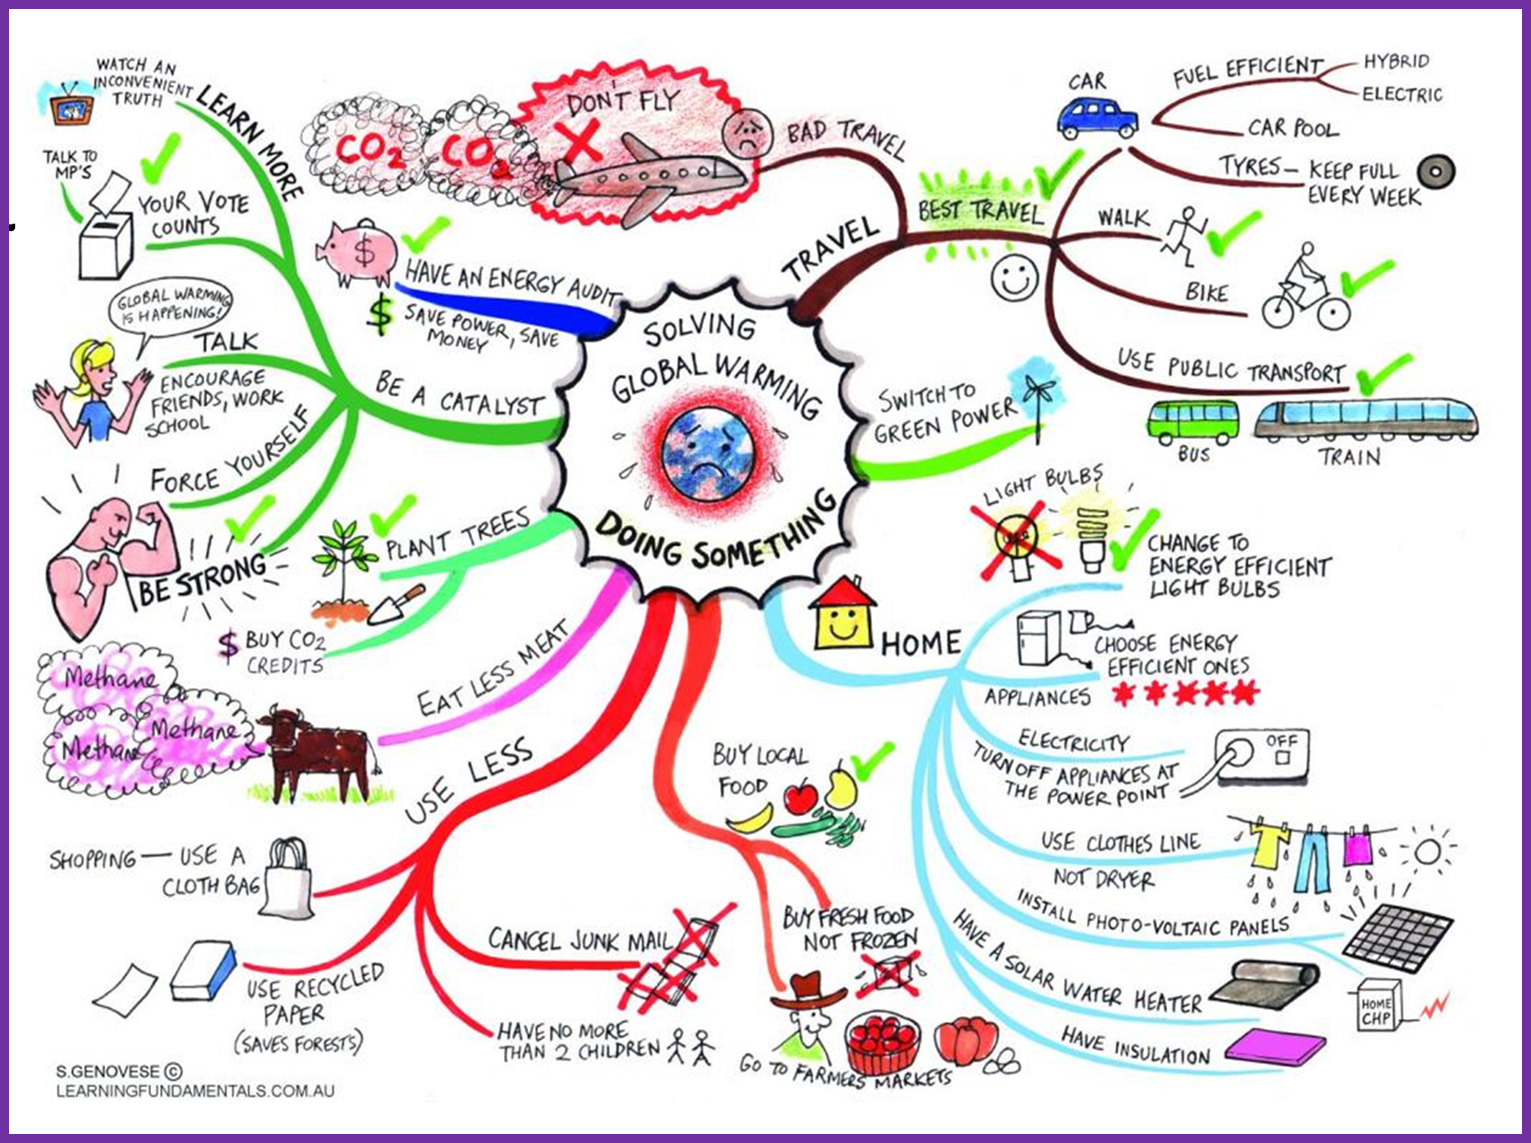 SOLVING
GLOBAL WARMING
DOING SOMETHING
TRAVEL
BAD TRAVEL
DON'T FLY
CO2
CO2
BEST TRAVEL
CAR
FUEL EFFICIENT
HYBRID
ELECTRIC
CAR POOL
TYRES — KEEP FULL
EVERY WEEK
WALK
BIKE
USE PUBLIC TRANSPORT
BUS
TRAIN
SWITCH TO
GREEN POWER
HOME
LIGHT BULBS
CHANGE TO
ENERGY EFFICIENT
LIGHT BULBS
CHOOSE ENERGY
EFFICIENT ONES
APPLIANCES
ELECTRICITY
TURN OFF APPLIANCES AT
THE POWER POINT
OFF
USE CLOTHES LINE
NOT DRYER
INSTALL PHOTO-VOLTAIC PANELS
HOME
CHP
HAVE A SOLAR WATER HEATER
HAVE INSULATION
BUY LOCAL
FOOD
BUY FRESH FOOD
NOT FROZEN
GO TO FARMERS MARKETS
USE LESS
SHOPPING — USE A
CLOTH BAG
USE RECYCLED
PAPER
(SAVES FORESTS)
CANCEL JUNK MAIL
HAVE NO MORE
THAN 2 CHILDREN
EAT LESS MEAT
Methane
Methane
Methane
PLANT TREES
$ BUY CO2
CREDITS
BE A CATALYST
LEARN MORE
WATCH AN
INCONVENIENT
TRUTH
YOUR VOTE
COUNTS
TALK TO
MP'S
TALK
ENCOURAGE
FRIENDS, WORK
SCHOOL
GLOBAL WARMING
IS HAPPENING!
FORCE YOURSELF
BE STRONG
HAVE AN ENERGY AUDIT
$ SAVE POWER, SAVE
MONEY
$
S.GENOVESE ©
LEARNINGFUNDAMENTALS.COM.AU